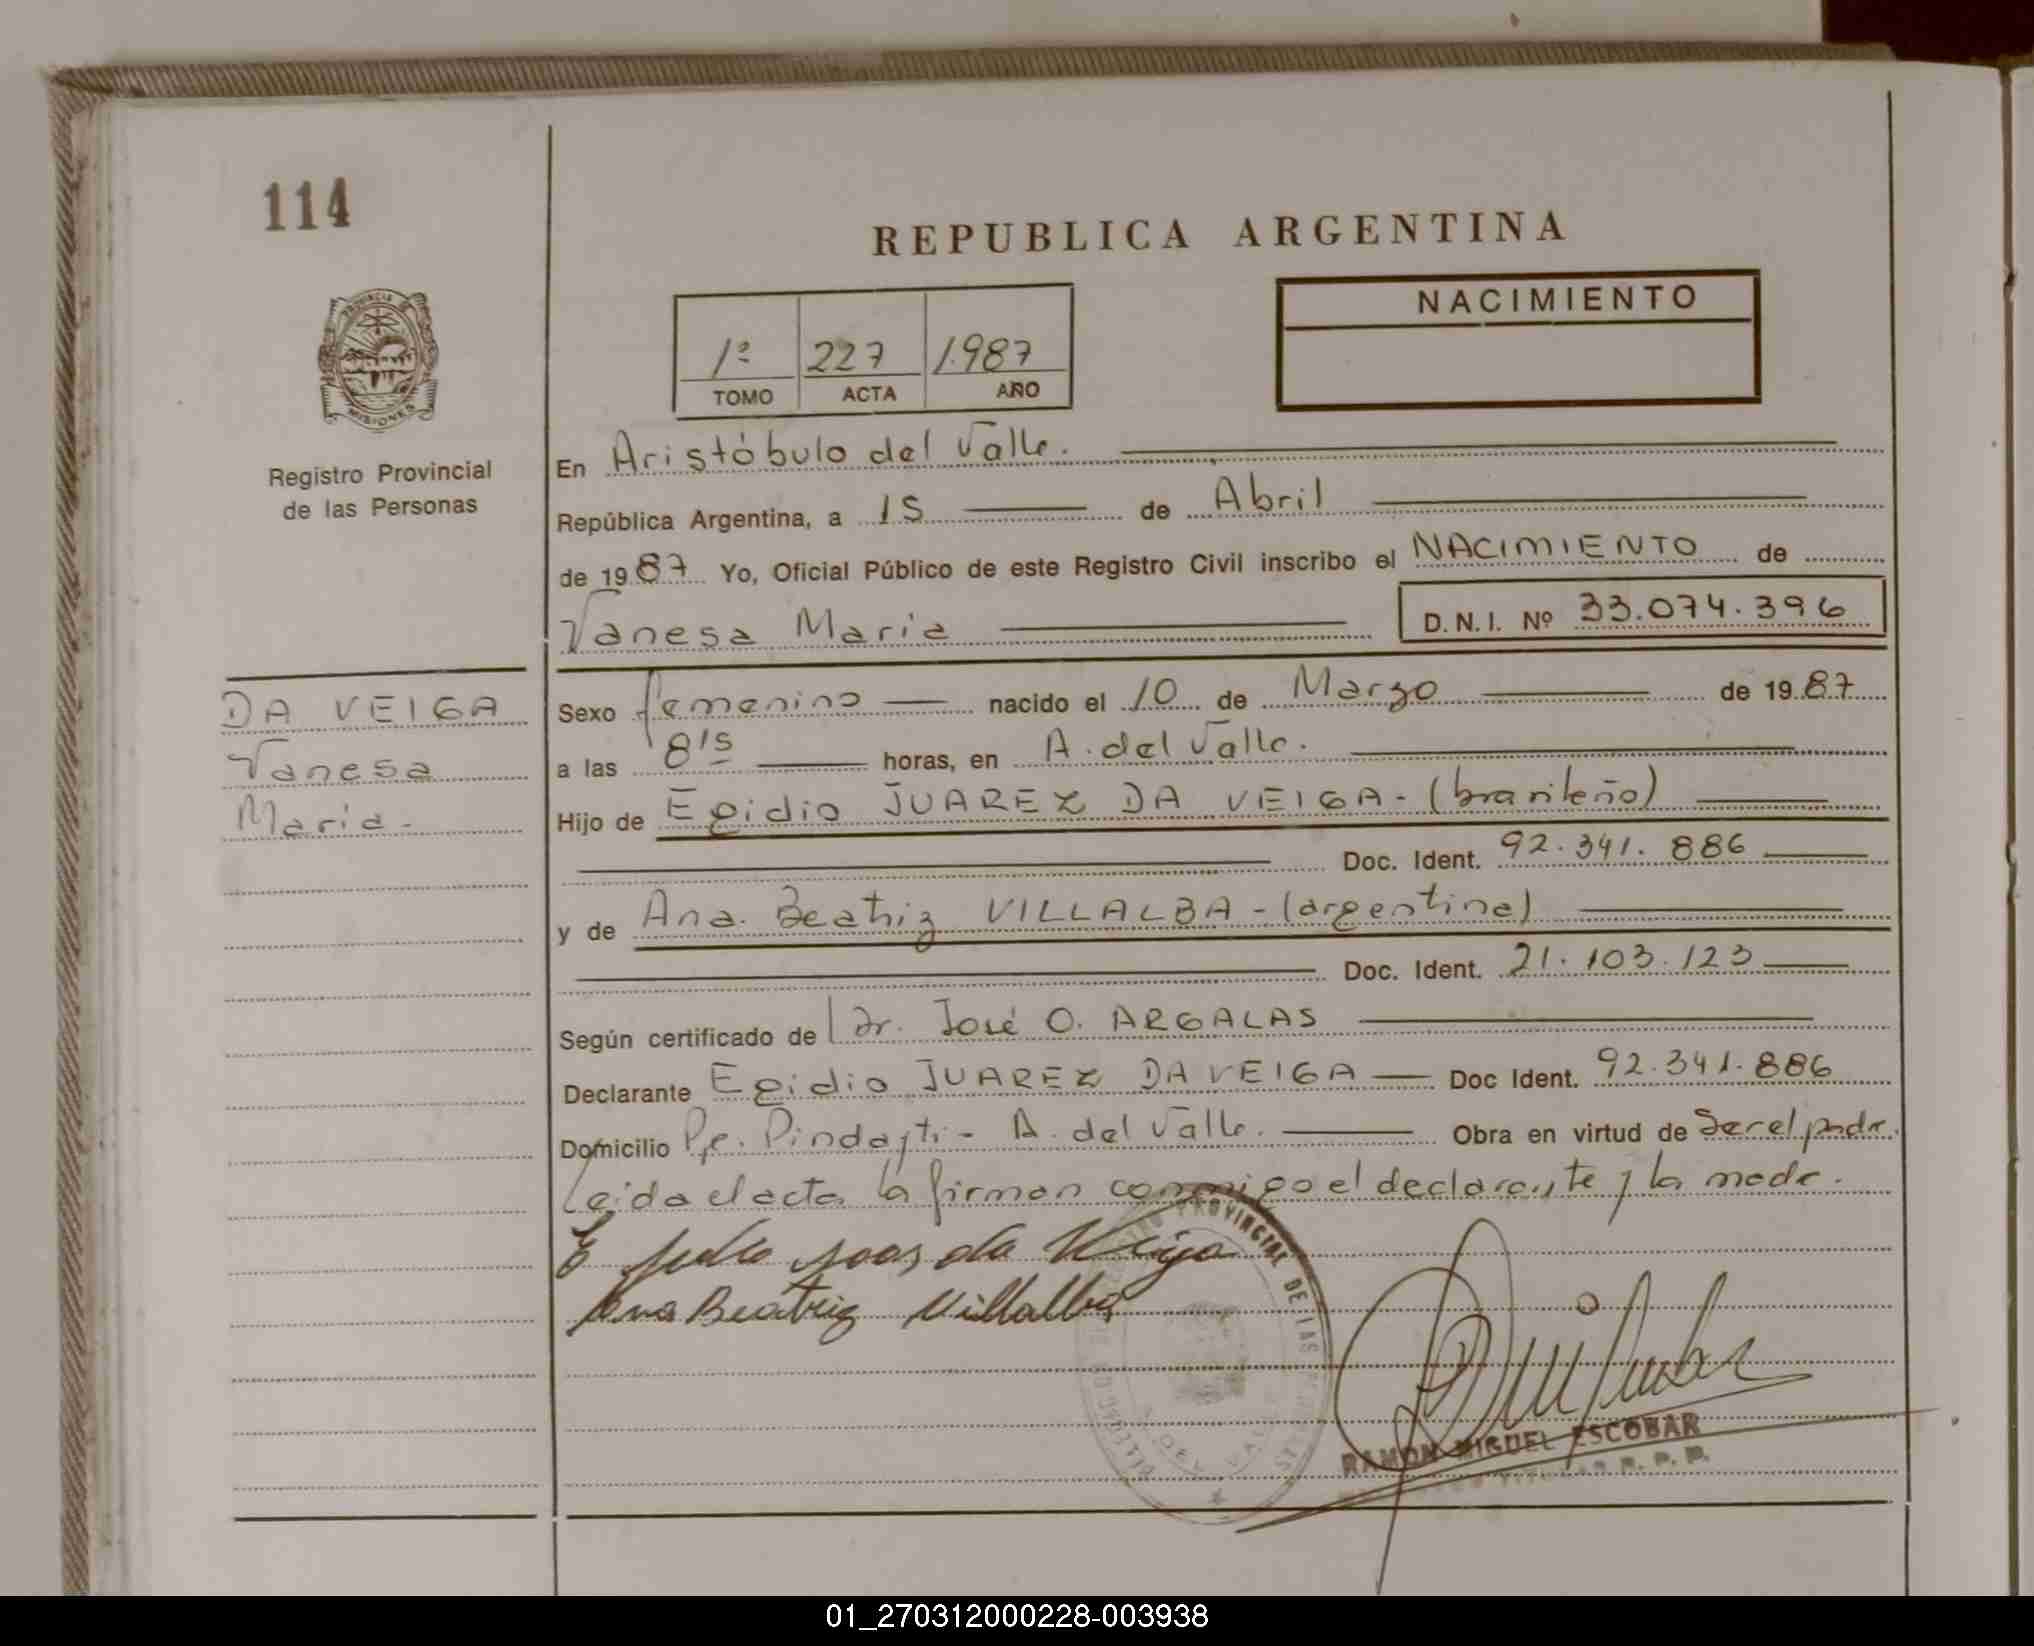 114
REPUBLICA ARGENTINA
NACIMIENTO
1º 227 1.987
TOMO ACTA AÑO
PROVINCIA DE
MISIONES
Registro Provincial
de las Personas
En Aristóbulo del Valle.
República Argentina, a 15 de Abril
de 1987 Yo, Oficial Público de este Registro Civil inscribo el NACIMIENTO de
Vanesa Maria D.N.I. Nº 33.074.396
DA VEIGA
Vanesa
Maria.-
Sexo femenino nacido el 10 de Marzo de 1987
a las 8'15 horas, en A. del Valle.
Hijo de Egidio JUAREZ DA VEIGA - (brasileño)
Doc. Ident. 92.341.886
y de Ana Beatriz VILLALBA - (argentina)
Doc. Ident. 21.103.123
Según certificado de Dr. José O. ARGALAS
Declarante Egidio JUAREZ DA VEIGA Doc Ident. 92.341.886
Domicilio A. del Valle. Obra en virtud de Ser el padre.
Leida el acta la firman conmigo el declarante y la madre.
da Veiga
Ana Beatriz Villalba
PROVINCIAL DE LAS
RAMON MIGUEL ESCOBAR
TITULAR R. P. P.
01_270312000228-003938